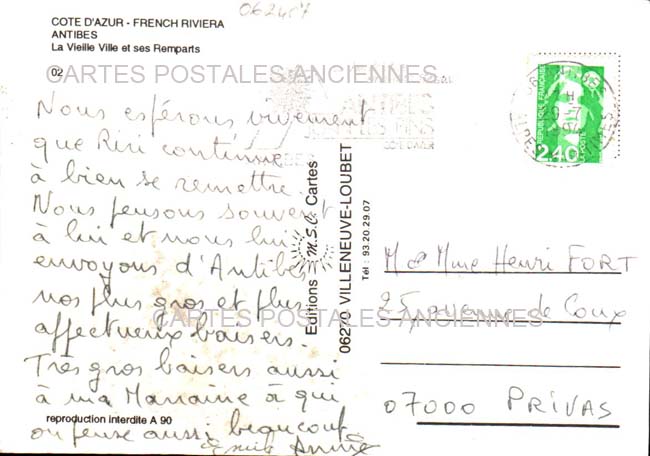 062407
COTE D'AZUR - FRENCH RIVIERA
ANTIBES
La Vieille Ville et ses Remparts
02
CARTES POSTALES ANCIENNES
Nous espérons vivement
que Riri continue
à bien se remettre.
Nous pensons souvent
à lui et nous lui
envoyons d'Antibes
nos plus gros et plus
affectueux baisers.
Très gros baisers aussi
à ma Marraine à qui
on pense aussi beaucoup
Annie
reproduction interdite A 90
Editions M.S.C. Cartes
06270 VILLENEUVE-LOUBET
Tél : 93.20.29.07
ANTIBES
JUAN LES PINS
REPUBLIQUE FRANÇAISE
2,40
LA POSTE
M & Mme Henri FORT
25, avenue de Coux
CARTES POSTALES ANCIENNES
07000 PRIVAS